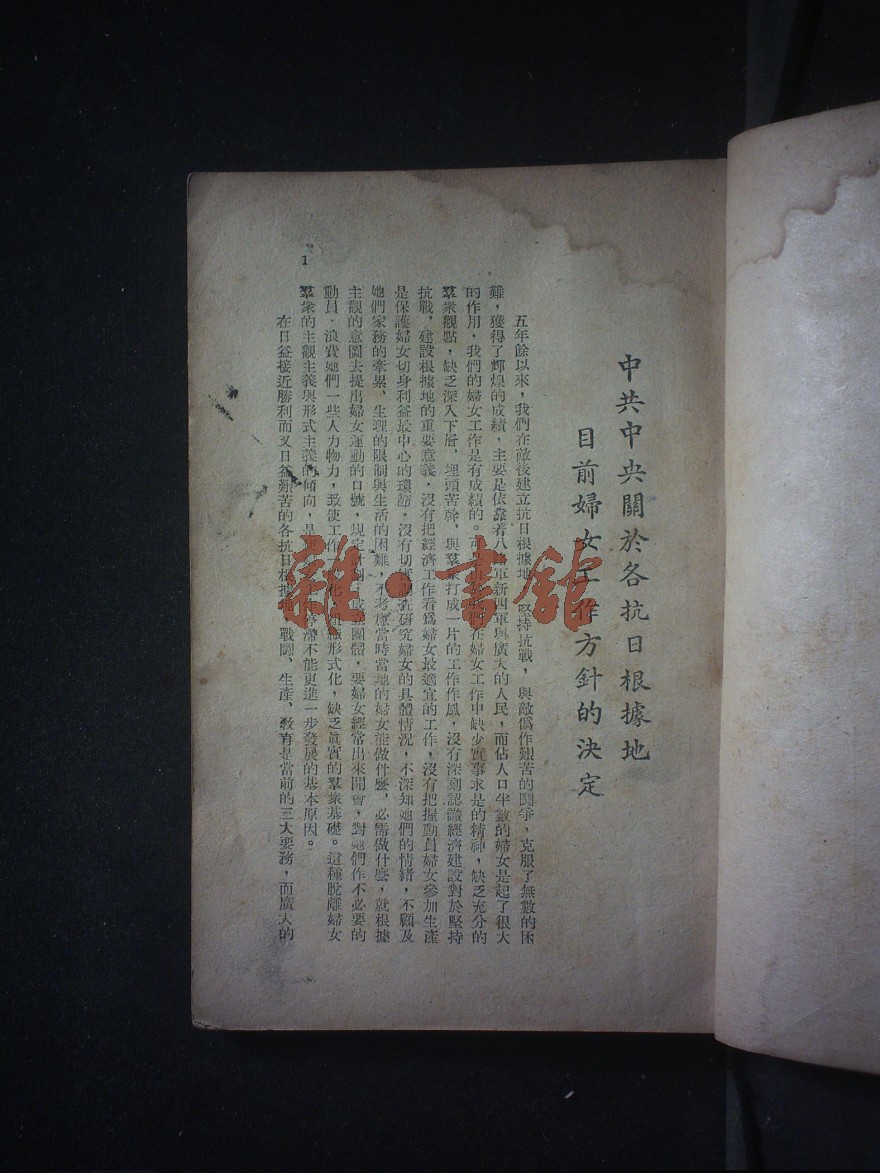 中共中央關於各抗日根據地
目前婦女工作方針的決定
五年餘以來，我們在敵後建立抗日根據地，堅持抗戰，與敵僞作艱苦的鬪爭，克服了無數的困
難，獲得了輝煌的成績，主要是依靠着八路軍新四軍與廣大的人民，而佔人口半數的婦女是起了很大
的作用，我們的婦女工作是有成績的。可是 在婦女工作中缺少實事求是的精神，缺乏充分的
羣衆觀點，缺乏深入下層，埋頭苦幹，與羣衆打成一片的工作作風，沒有深刻認識經濟建設對於堅持
抗戰，建設根據地的重要意義，沒有把經濟工作看爲婦女最適宜的工作，沒有把握動員婦女參加生產
是保護婦女切身利益最中心的環節，沒有切實調查研究婦女的具體情況，不深知她們的情緒，不顧及
她們家務的牽累、生理的限制與生活的困難，不考慮當時當地的婦女能做什麼，必需做什麼，就根據
主觀的意圖去提出婦女運動的口號，規定 成立團體，要婦女經常出來開會，對她們作不必要的
動員，浪費她們一些人力物力，致使工作一 化，組織形式化，缺乏眞實的羣衆基礎。這種脫離婦女
羣衆的主觀主義與形式主義的傾向，是 停滯不能更進一步發展的基本原因。
在日益接近勝利而又日益艱苦的各抗日根據地，戰鬪、生產、敎育是當前的三大要務，而廣大的
1
雜·書館